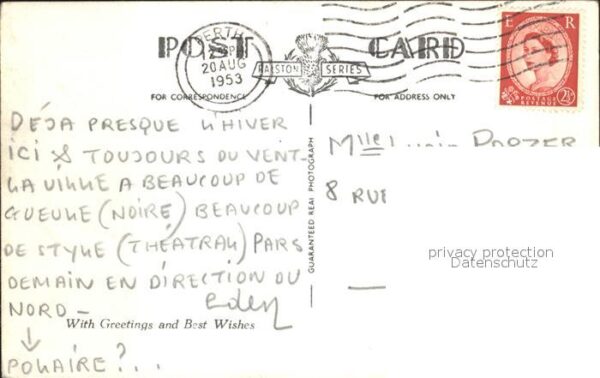 PERTH
12 PM
20 AUG
1953
POST CARD
RALSTON SERIES
FOR CORRESPONDENCE
FOR ADDRESS ONLY
E R
POSTAGE
REVENUE
2½D
DÉJA PRESQUE L'HIVER
ICI & TOUJOURS DU VENT-
LA VILLE A BEAUCOUP DE
GUEULE (NOIRE) BEAUCOUP
DE STYLE (THÉATRAL) PARS
DEMAIN EN DIRECTION DU
NORD -
↓
POLAIRE?...
With Greetings and Best Wishes
GUARANTEED REAL PHOTOGRAPH
Mlle
8 RUE
privacy protection
Datenschutz